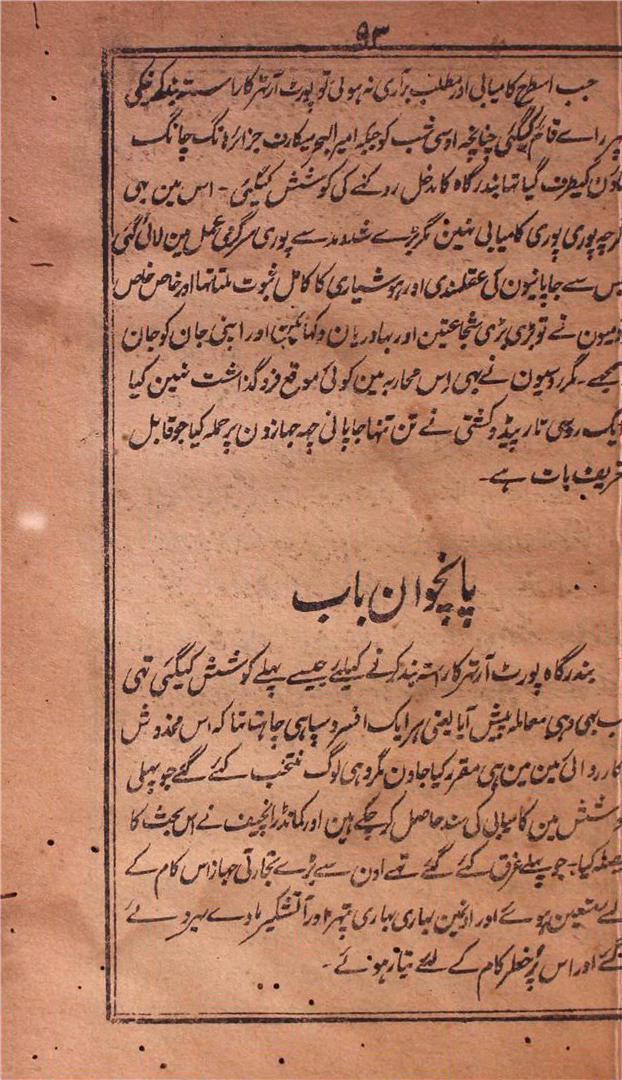 ۹۳
جب اسطرح کامیابی اور مطلب برآری نہ ہوئی تو پورٹ آرتھر کا راستہ بند کرنیکی
پر رائے قائم کیگئی چنانچہ اوسی شب کو جبکہ امیر البحر میکارف جزائر ہانگ چانگ
کیطرف گیا تہا بندرگاہ کا مدخل روکنے کی کوشش کیگئی۔ اس مین بہی
گرچہ پوری پوری کامیابی نہین مگر بڑے شدومد سے پوری سرگرمی عمل مین لائی گئی
جس سے جاپانیون کی عقلمندی اور ہوشیاری کا کامل ثبوت ملتا تہا اور خاص خاص
آدمیون نے تو بڑی بڑی شجاعتین اور بہادریان دکہائین اور اپنی جان کو جان
سمجھے۔ مگر روسیون نے بہی اِس محاربہ مین کوئی موقع فروگذاشت نہین کیا
ایک روسی تارپیڈو کشتی نے تن تنہا جاپانی چہ جہازون پر حملہ کیا جو قابل
تعریف بات ہے۔
پانچوان باب
بندرگاہ پورٹ آرتھر کا راستہ بند کرنے کیلئے جیسے پہلے کوشش کیگئی تہی
اب بہی وہی معاملہ پیش آیا یعنی ہر ایک افسر و سپاہی چاہتا تہا کہ اس مخدوش
کارروائی مین مین ہی مقرر کیا جاون مگر وہی لوگ منتخب کئے گئے جو پہلی
کوشش مین کامیابی کی سند حاصل کر چکے ہین اور کمانڈر انچیف نے اس بحث کا
فیصلہ کیا۔ جو پہلے غرق کئے گئے تہے اون سے بڑے تجارتی جہاز اس کام کے
لئے متعین ہوئے اور اونہین بہاری بہاری پتہر اور آتشگیر مادے بہر دئے
گئے اور اس پُر خطر کام کے لئے تیار ہوئے۔